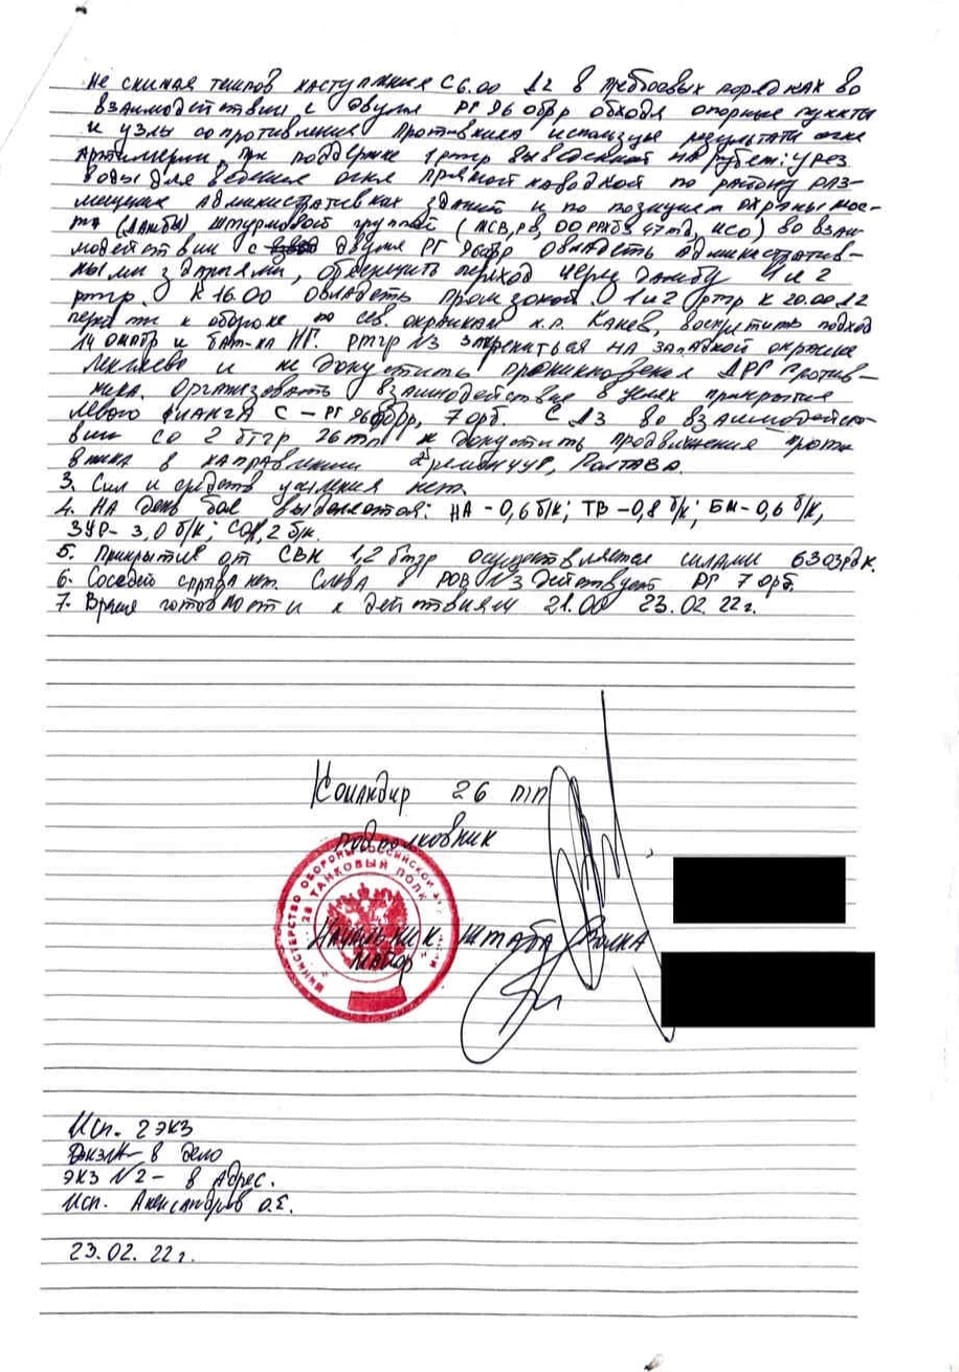 не снижая темпов наступления с 6.00 Д2 в предбоевых порядках во
взаимодействии с двумя РГ 96 обрр обходя опорные пункты
и узлы сопротивления противника используя результаты огня
артиллерии, при поддержке 1 ртгр выведенной на рубеж: урез
воды для ведения огня прямой наводкой по району раз-
мещения административных зданий и по позициям охраны мос-
та (дамбы) штурмовой группой (МСВ, РВ, ОО РХБЗ 47 тд, ИСО) во взаи-
модействии с двумя РГ 96 обрр овладеть административ-
ными зданиями, обеспечить переход через дамбу 1 и 2
ртгр. К 16.00 овладеть промзоной. 1 и 2 ртгр к 20.00 Д2
перейти к обороне по сев. окраинам н.п. Канев, воспретить подход
14 омбр и бат-на НГ. ртгр №3 закрепиться на западной окраине
и не допустить проникновения ДРГ против-
ника. Организовать взаимодействие в целях прикрытия
левого фланга с – РГ 96 обрр, 7 орб. С Д3 во взаимодейст-
вии со 2 бтгр 26 тп не допустить продвижения проти-
вника в направлении Кременчуг, Полтава.
3. Сил и средств усиления нет.
4. На день боя выделяется: НА - 0,6 б/к; ТВ - 0,8 б/к; БМ - 0,6 б/к,
ЗУР - 3,0 б/к; СО 1,2 б/к.
5. Прикрытие от СВН 1,2 бтгр осуществляется силами 63 озрдн.
6. Соседей справа нет. Слева в РОВ №3 действует РГ 7 орб.
7. Время готовности к действиям 21.00 23.02.22 г.
Командир 26 тп
подполковник
МИНИСТЕРСТВО ОБОРОНЫ РОССИЙСКОЙ
26 ТАНКОВЫЙ ПОЛК
Начальник штаба полка
майор
Исп. 2 экз
в дело
Экз №2 - в адрес.
Исп. Александров О.Е.
23.02.22 г.